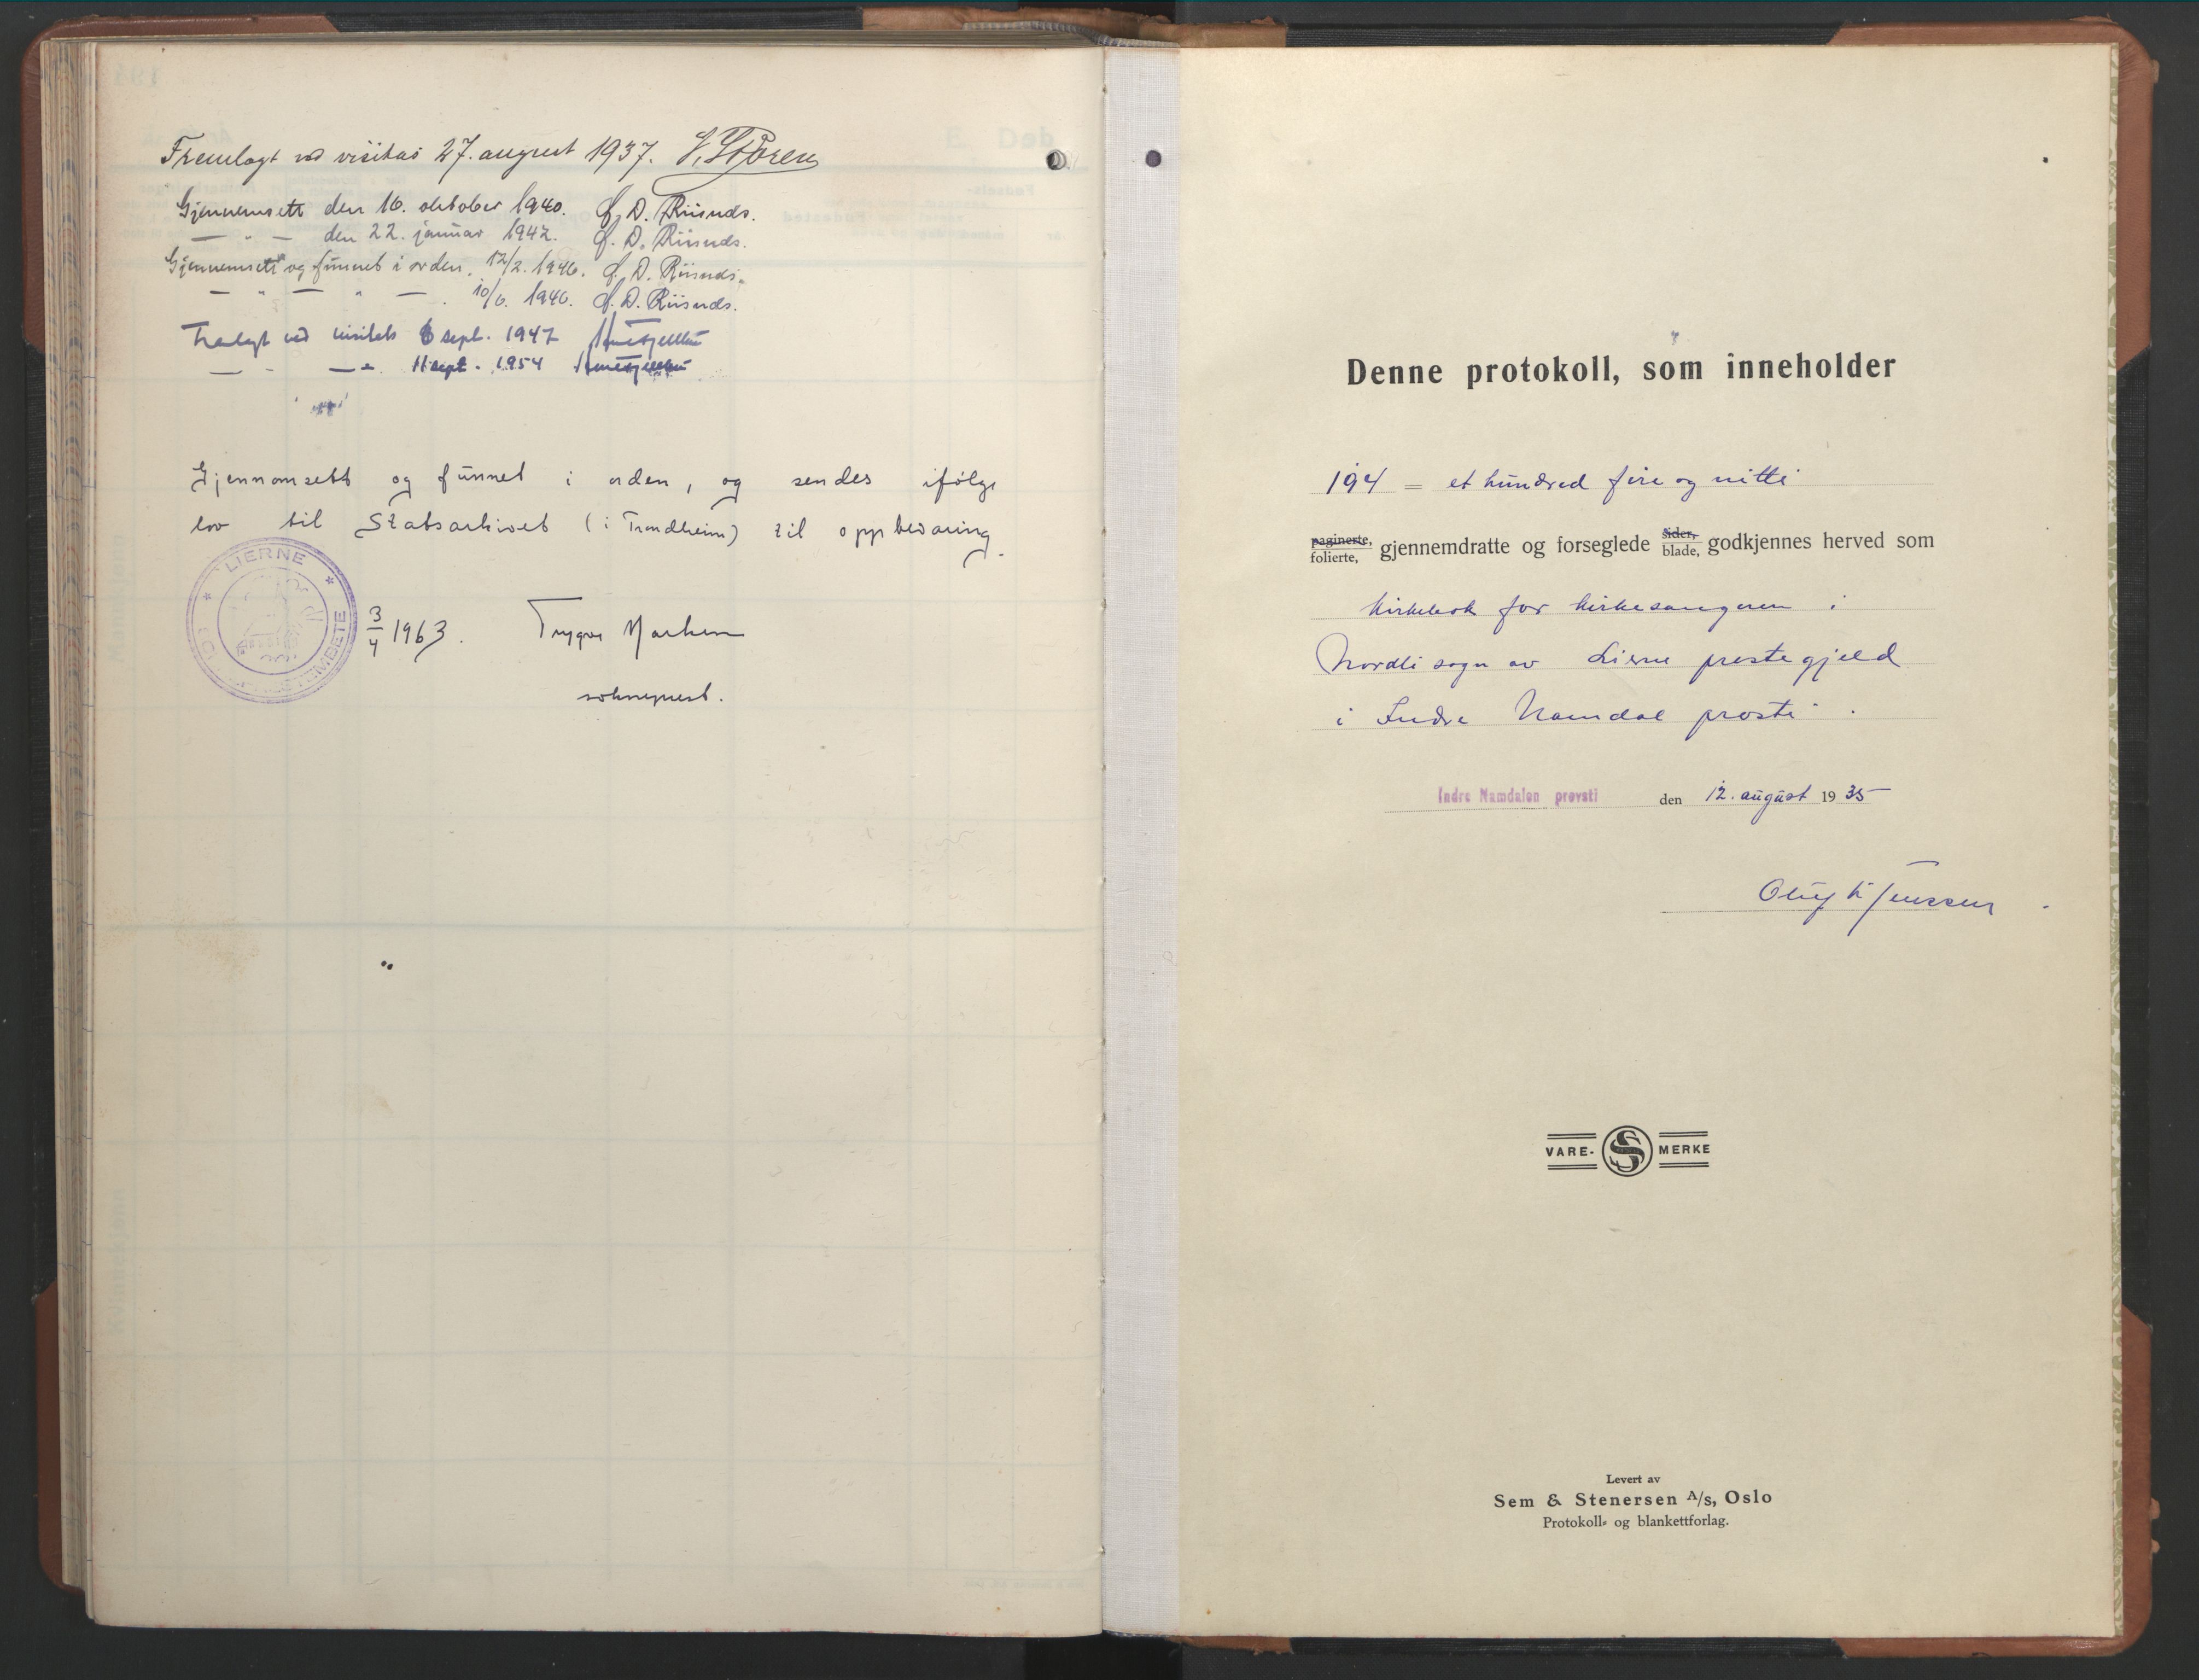 Fremlagt ved visitas 27. august 1937. J. Støren
Gjennemsett den 16. oktober 1940. J. D. Riisnes.
— " — den 22. januar 1942. J. D. Riisnes.
Gjennemsett og funnet i orden. 12/2. 1946. J. D. Riisnes.
— " — " — . 10/6. 1946. J. D. Riisnes.
Fralagt ved visitas 6 sept. 1947 Arne Fjellbu
— " — " 11 sept. 1954 Arne Fjellbu
Gjennomsett og funnet i orden, og sendes ifølge
lov til Statsarkivet (i Trondheim) til oppbevaring.
LIERNE
3/4 1963. Trygve
sokneprest.
Denne protokoll, som inneholder
194 = et hundred fire og nitti
paginerte, folierte, gjennemdratte og forseglede sider, blade, godkjennes herved som
kirkebok for kirkesangeren i
Nordli sogn av Lierne prestegjeld
i Indre Namdal prosti.
Indre Namdalen prosti den 12. august 1935
VARE- S MERKE
Levert av
Sem & Stenersen A/s, Oslo
Protokoll- og blankettforlag.